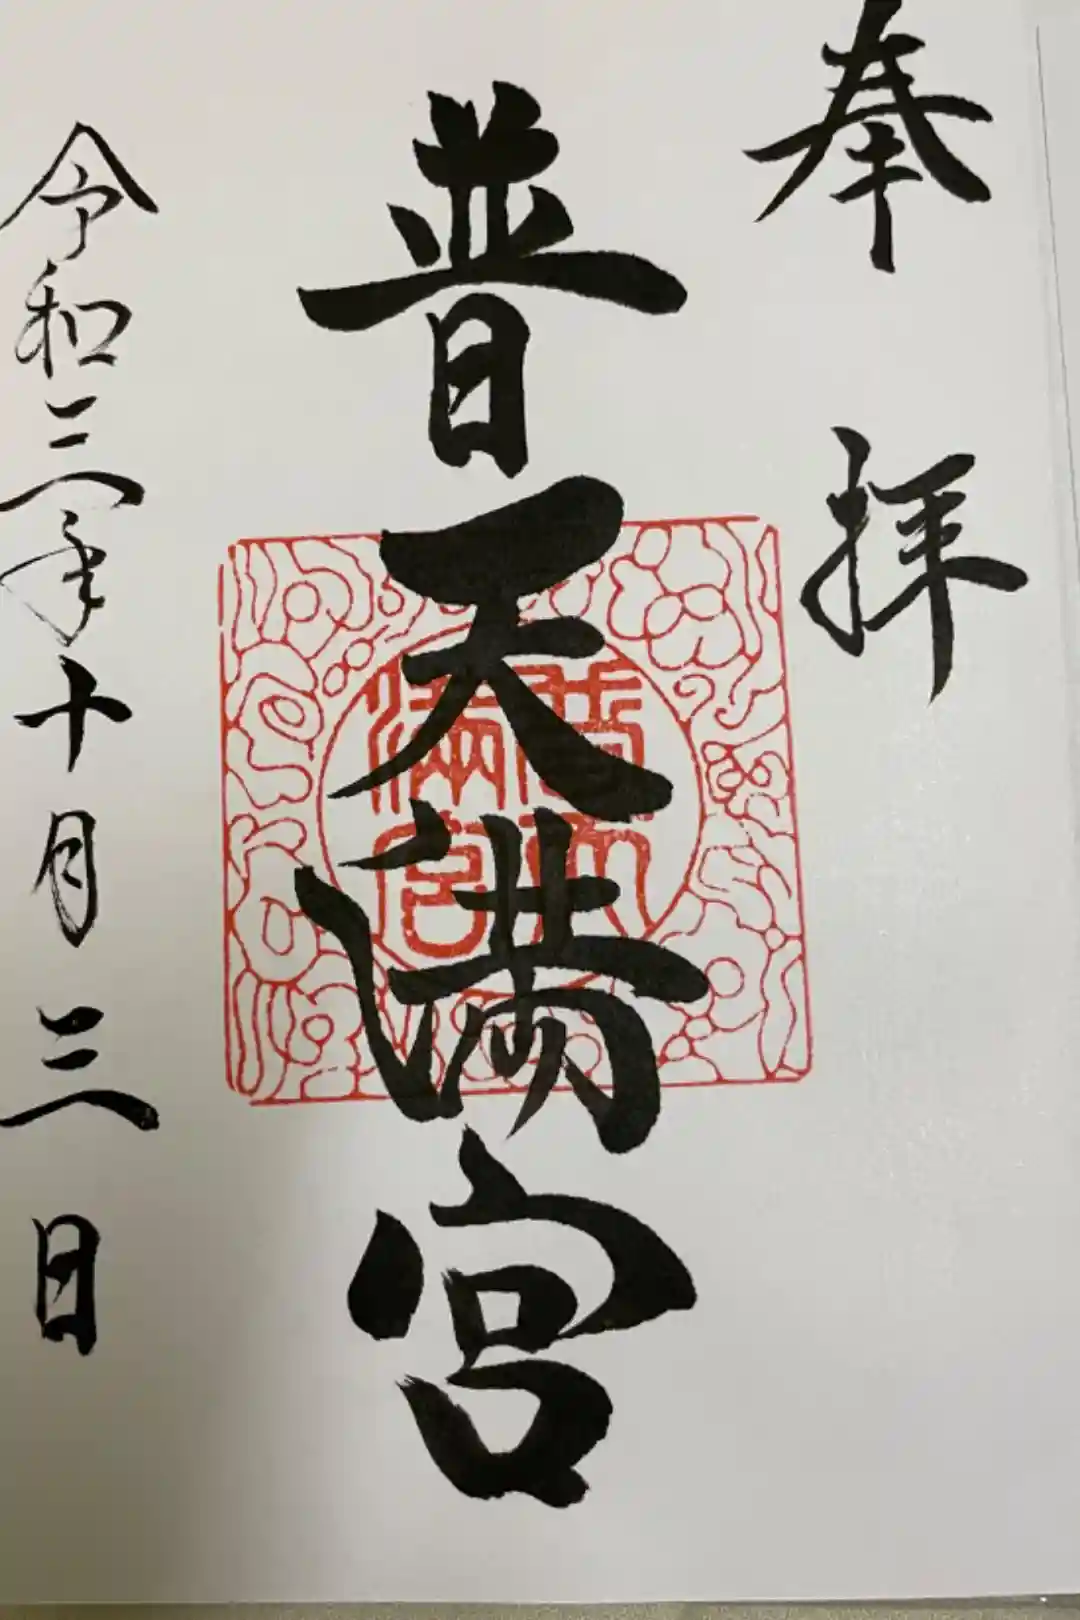 奉拝
普天満宮
令和三年十月三日
普天
満宮